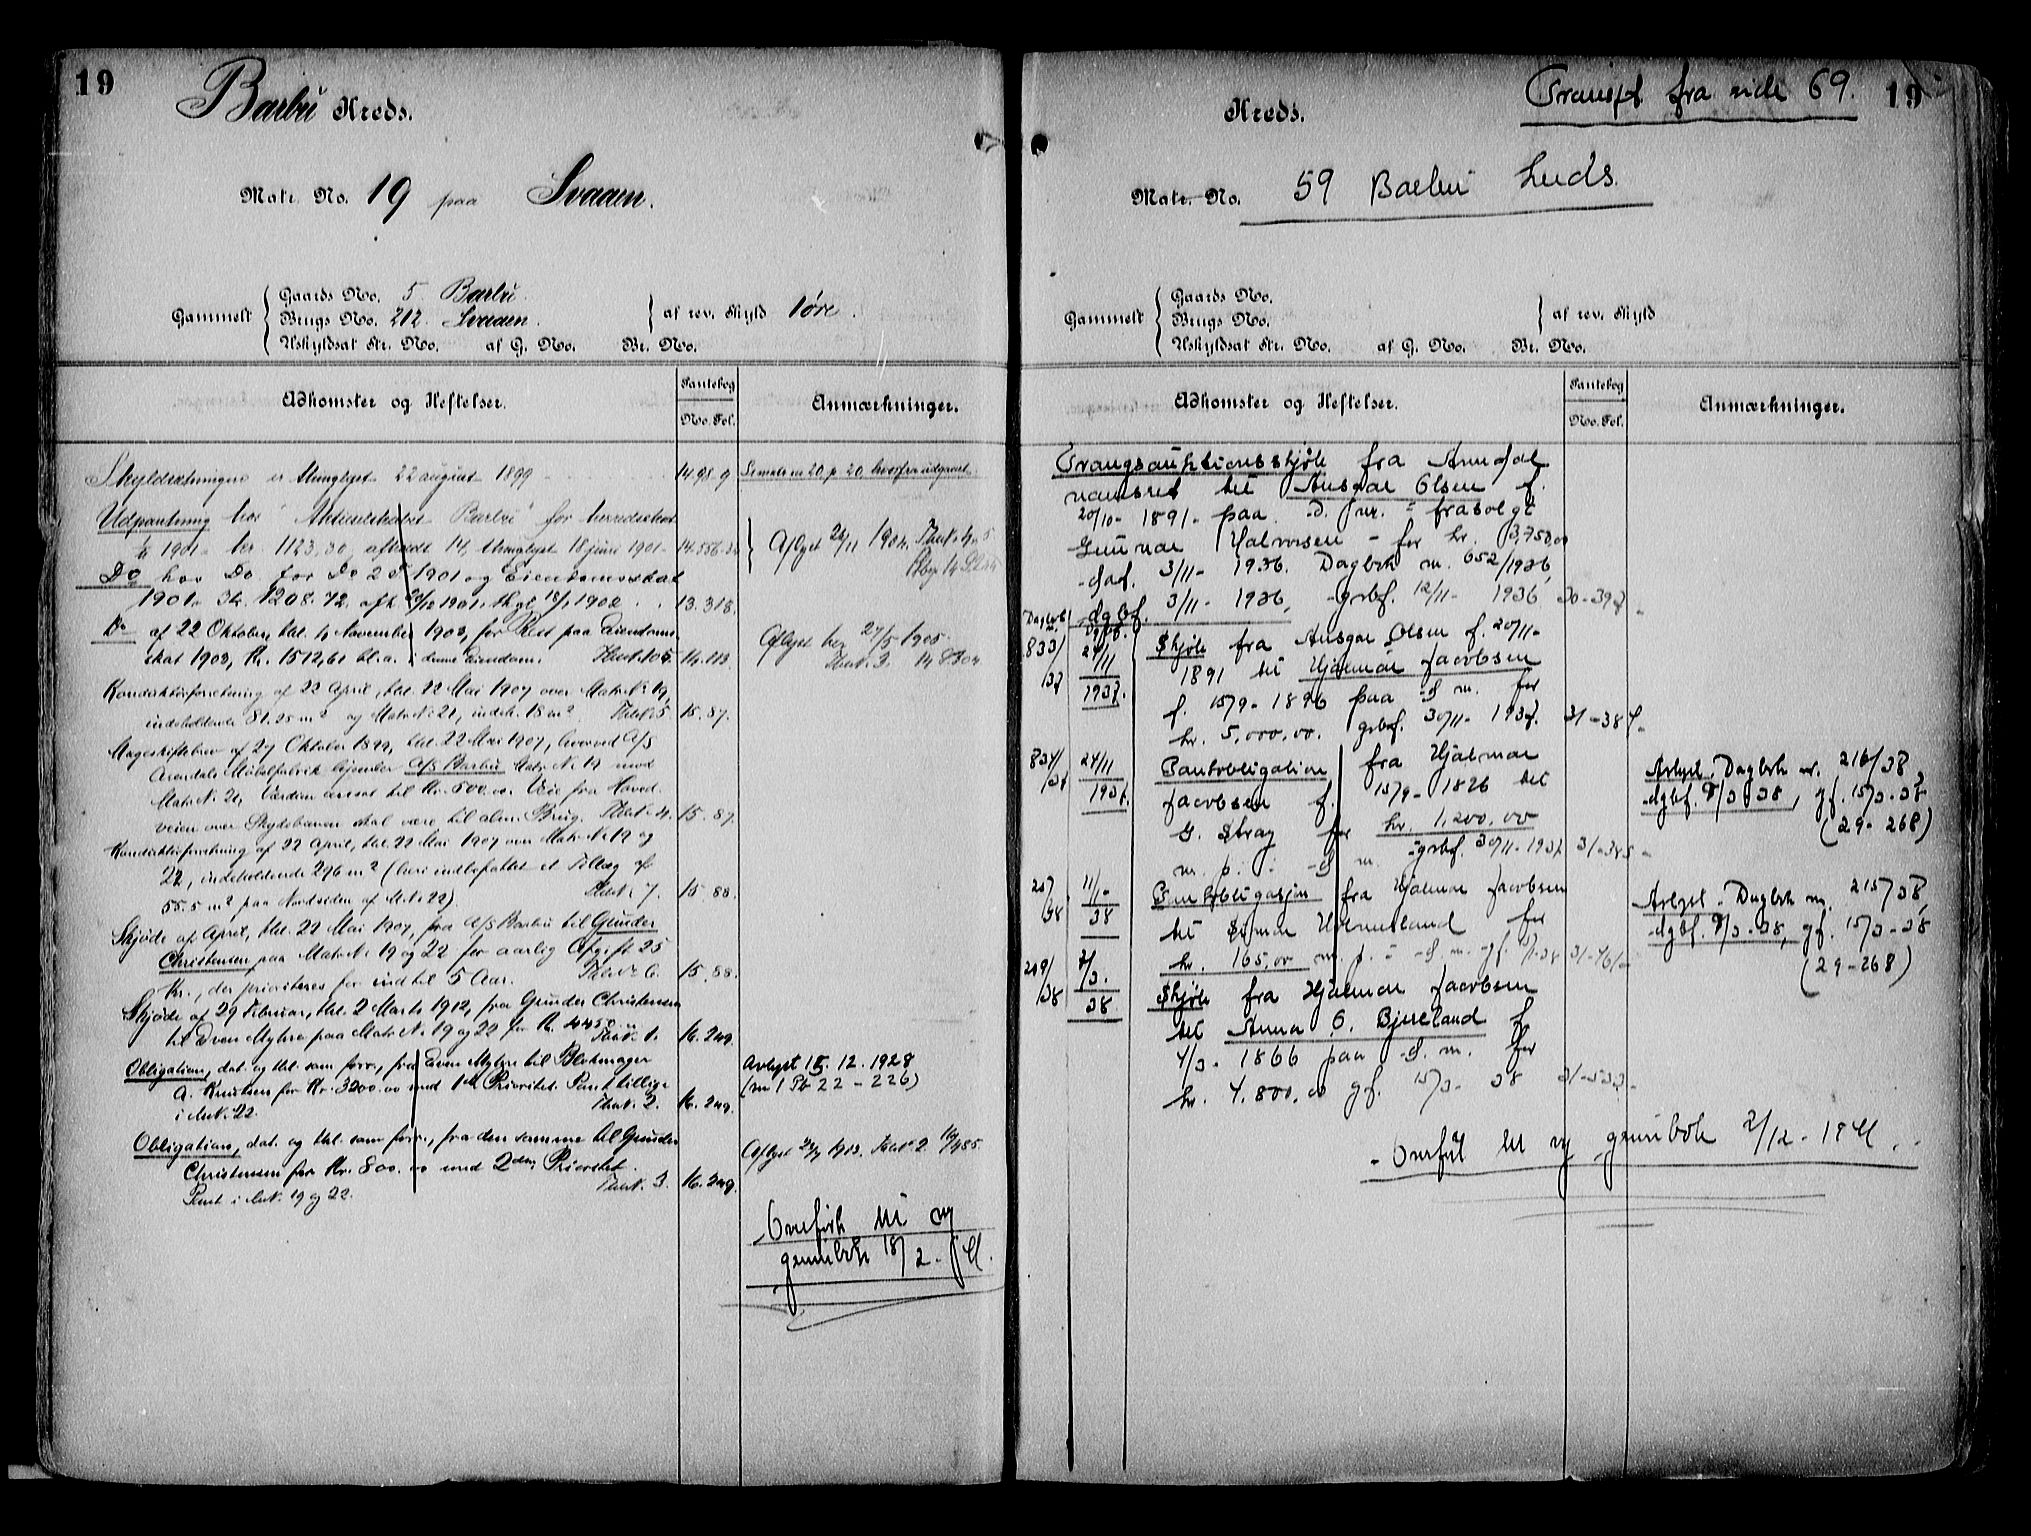 19
Barbu Kreds.
Matr. No. 19 paa Svaaen.
Gammelt
Gaards No. 5 Barbu
Brugs No. 212. Svaaen.
Uskyldsat Str. No. af G. No. Br. No.
af rev. Skyld 1 øre.
Adkomster og Heftelser.
Pantebog
No. Fol.
Anmærkninger.
Skyldsætningen er thinglyst 22 august 1899 14-98-9 Se matr no 20, p. 20, hvorfra udgaaet.
Udpantning hos "Aktieselskabet Barbu" for herredsskat
1901. kr. 1123,30, afholdt 14, thinglyst 18 juni 1901 14.556
Aflyst 1904.
Do hos Do for Do 1901 og Eiendomsskat
1901. Kr. 1208.72, 1901, 18/1 1902. 13.318.
Do af 22 Oktober, thl. November 1903, for Rest paa Eiendoms-
skat 1903, Kr. 1512,61 bl.a. i denne Eiendom. 14.113.
Aflyst 27/5 1905.
Konduktørforretning af 22 April, thl. 22 Mai 1907 over Matr. N. 19,
indeholdende 81.25 m² og Matr. N. 21, indeh. 18 m². 15.87.
Mageskiftebrev af 27 Oktober 1899, thl. 22 Mai 1907, hvorved A/S
Arendals Møbelfabrik A/S Barbu Matr. N. 19 mod
Matr. N. 21, Værdien ansat til Kr. 500.00. Vei fra Hoved-
veien over Skydebanen skal være til alm. Brug. 15.87.
Konduktørforretning af 22 April, thl. 22 Mai 1907 over Matr. N. 19 og
22, indeholdende 296 m² (heri indbefattet et Tillæg af
55.5 m² paa Nordsiden af M.N. 22) 15.88.
Skjøde af April, thl. 22 Mai 1907, fra A/S Barbu til Gunder
Christensen paa Matr. N. 19 og 22 for aarlig Afgift 25
Kr., der prioriteres for indtil 5 Aar. 15.88.
Skjøde af 29 Februar, thl. 2 Marts 1912, fra Gunder Christensen
til Even Myhre paa Matr. N. 19 og 22 for Kr. 4450.00 16.249.
Obligation, dat. og thl. som forr., fra Even Myhre til Blokmager
A. Knutsen for Kr. 3200.00 med 1ste Prioritet. Pant tillige
i M.N. 22. 16.249.
Avlyst 15. 12. 1928
(nr 1 Pb 22 - 226)
Obligation, dat. og thl. som forr., fra den samme til Gunder
Christensen for Kr. 800.00 med 2den Prioritet.
Pant i M.N. 19 og 22. 16.249.
Aflyst 1913.
Overført til ny
grunnbok 18/2 -
19
Transpt fra side 69.
Kreds.
Matr. No. 59 Barbu kreds.
Gammelt
Gaards No.
Brugs No.
Uskyldsat Str. No. af G. No. Br. No.
af rev. Skyld
Adkomster og Heftelser.
Pantebog
No. Fol.
Anmærkninger.
Tvangsauktionsskjøte fra Arendal
namsret til Ansgar Olsen f.
20/10- 1891- paa d. m. fraso lgt
Gunnar Halvorsen - for kr. 3,750,00
daf. 3/11- 1936. Dagbok nr. 652/1936
dgbf. 3/11- 1936, grbf. 12/11- 1936 30-397-
Dagbok
833/37 24/11 1937. Skjøte fra Ansgar Olsen f. 20/11-
1891 til Hjalmar Jacobsen
f. 15/9- 1896 paa d m. for
kr. 5,000,00. grbf. 30/11- 1937. 31-384-
834/37 24/11 1937. Pantobligation fra Hjalmar
Jacobsen f. 15/9- 1896 til
G. Stray for kr. 1,200,00
m. p. i d m. grbf. 30/11-1937 31-385-
Avlyst. Dagbok nr. 216/38
dgbf. 8/3-38, gf. 15/3-38,
(29-268)
207/38 11/1- 38 Pantobligasjon fra Hjalmar Jacobsen
til
kr. 165,00 m. p. i d. m. 31-461-
Avlyst. Dagbok nr. 215/38,
dgbf. 8/3-38, gf. 15/3-38
(29-268)
249/38 38 Skjøte fra Hjalmar Jacobsen
til Anna O. Bjerland f
4/3- 1866 paa d. m. for
kr. 4.800,00 gf. 15/3- 38 31-533-
Overført til ny grunnbok 2/12-1941.